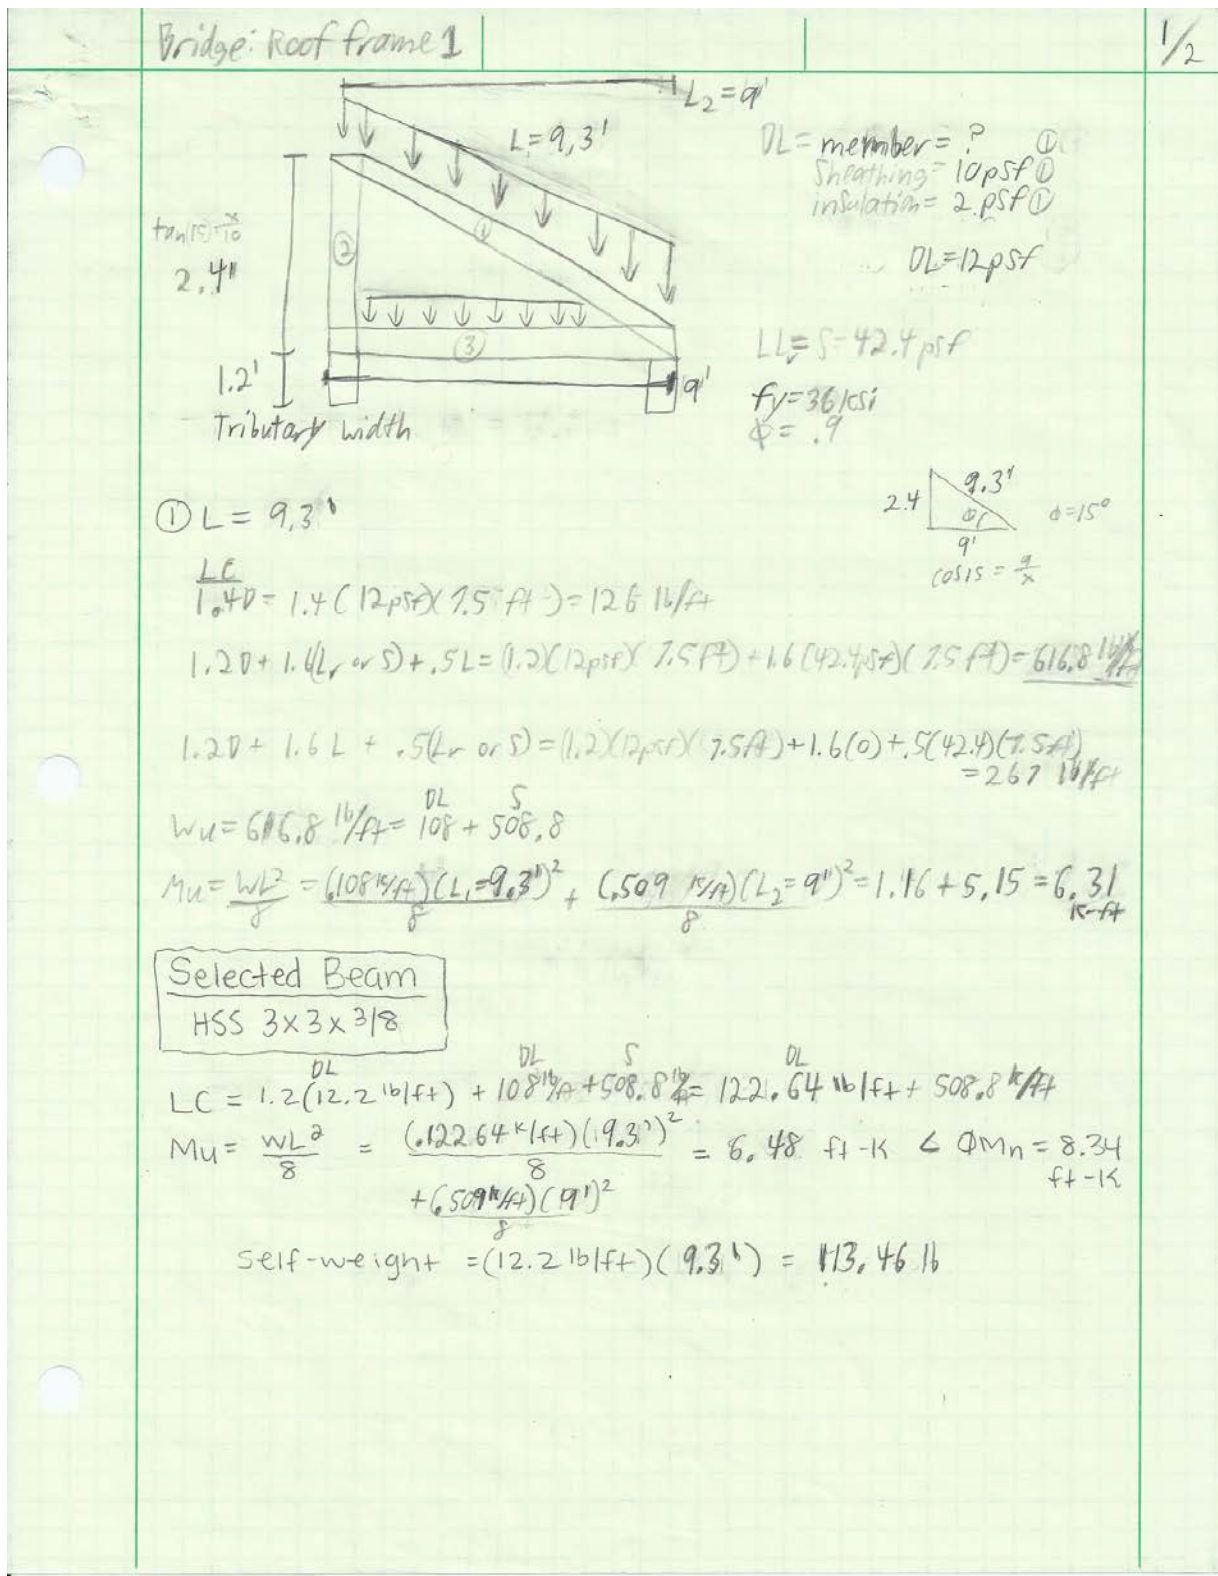 Bridge: Roof frame 1
1/2
L₂=9'
L=9,3'
DL= member= ? ①
Sheathing= 10psf ①
insulation= 2 psf ①
DL=12psf
tan(15)=x/10
2.4"
①
②
③
1.2'
9'
Tributary width
LLr= S=42.4psf
fy=36ksi
Φ= .9
① L= 9,3'
2.4
9.3'
9'
ϕ=15°
cos15 = 9/x
LC
1.4D= 1.4(12psf)(7.5 ft)=126 lb/ft
1.2D+1.6(Lr or S)+.5L=(1.2)(12psf)(7.5ft)+1.6(42.4psf)(7.5ft)=616.8 lb/ft
1.2D+ 1.6L + .5(Lr or S)=(1.2)(12psf)(7.5ft)+1.6(0)+.5(42.4)(7.5ft)
=267 lb/ft
DL S
Wu=616.8 lb/ft= 108+ 508.8
Mu= WL²/8 = (.108 k/ft)(L₁=9.3')²/8 + (.509 k/ft)(L₂=9')²/8 = 1.16+5.15=6.31
k-ft
Selected Beam
HSS 3x3x3/8
DL DL S DL
LC = 1.2(12.2 lb/ft) + 108 lb/ft +508.8 lb/ft= 122.64 lb/ft+ 508.8 k/ft
Mu= WL²/8 = (.12264 k/ft)(9.3')²/8 = 6.48 ft-k < ΦMn= 8.34
ft-k
+(.509k/ft)(9')²/8
Self-weight =(12.2 lb/ft)(9.3') = 113.46 lb